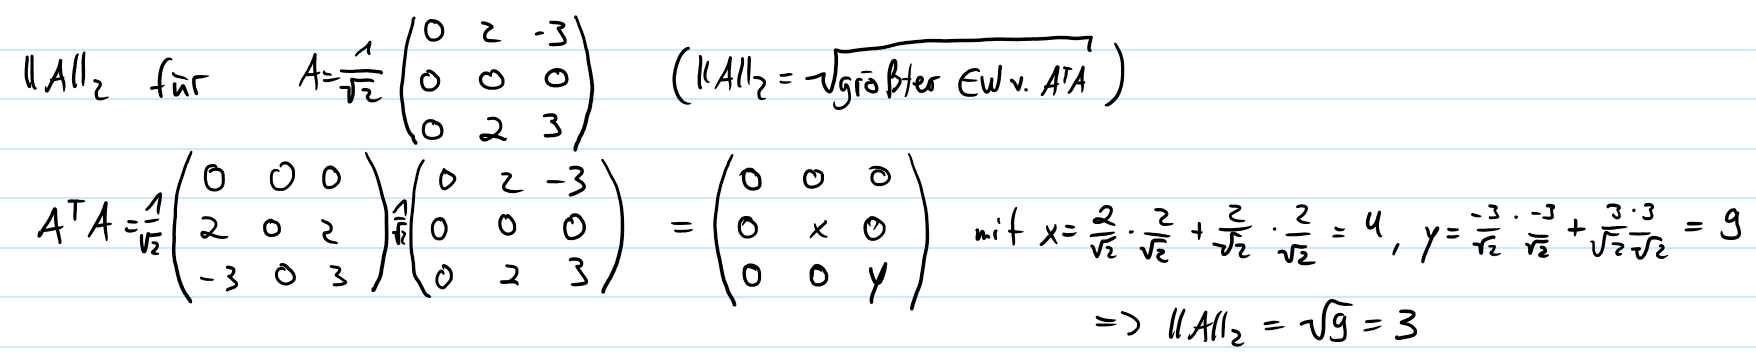 ||A||₂ für A = 1/√2 (0 2 -3; 0 0 0; 0 2 3) (||A||₂ = √größter EW v. AᵀA)
AᵀA = 1/√2 (0 0 0; 2 0 2; -3 0 3) 1/√2 (0 2 -3; 0 0 0; 0 2 3) = (0 0 0; 0 x 0; 0 0 y) mit x = 2/√2 · 2/√2 + 2/√2 · 2/√2 = 4, y = -3/√2 · -3/√2 + 3/√2 · 3/√2 = 9
=> ||A||₂ = √9 = 3